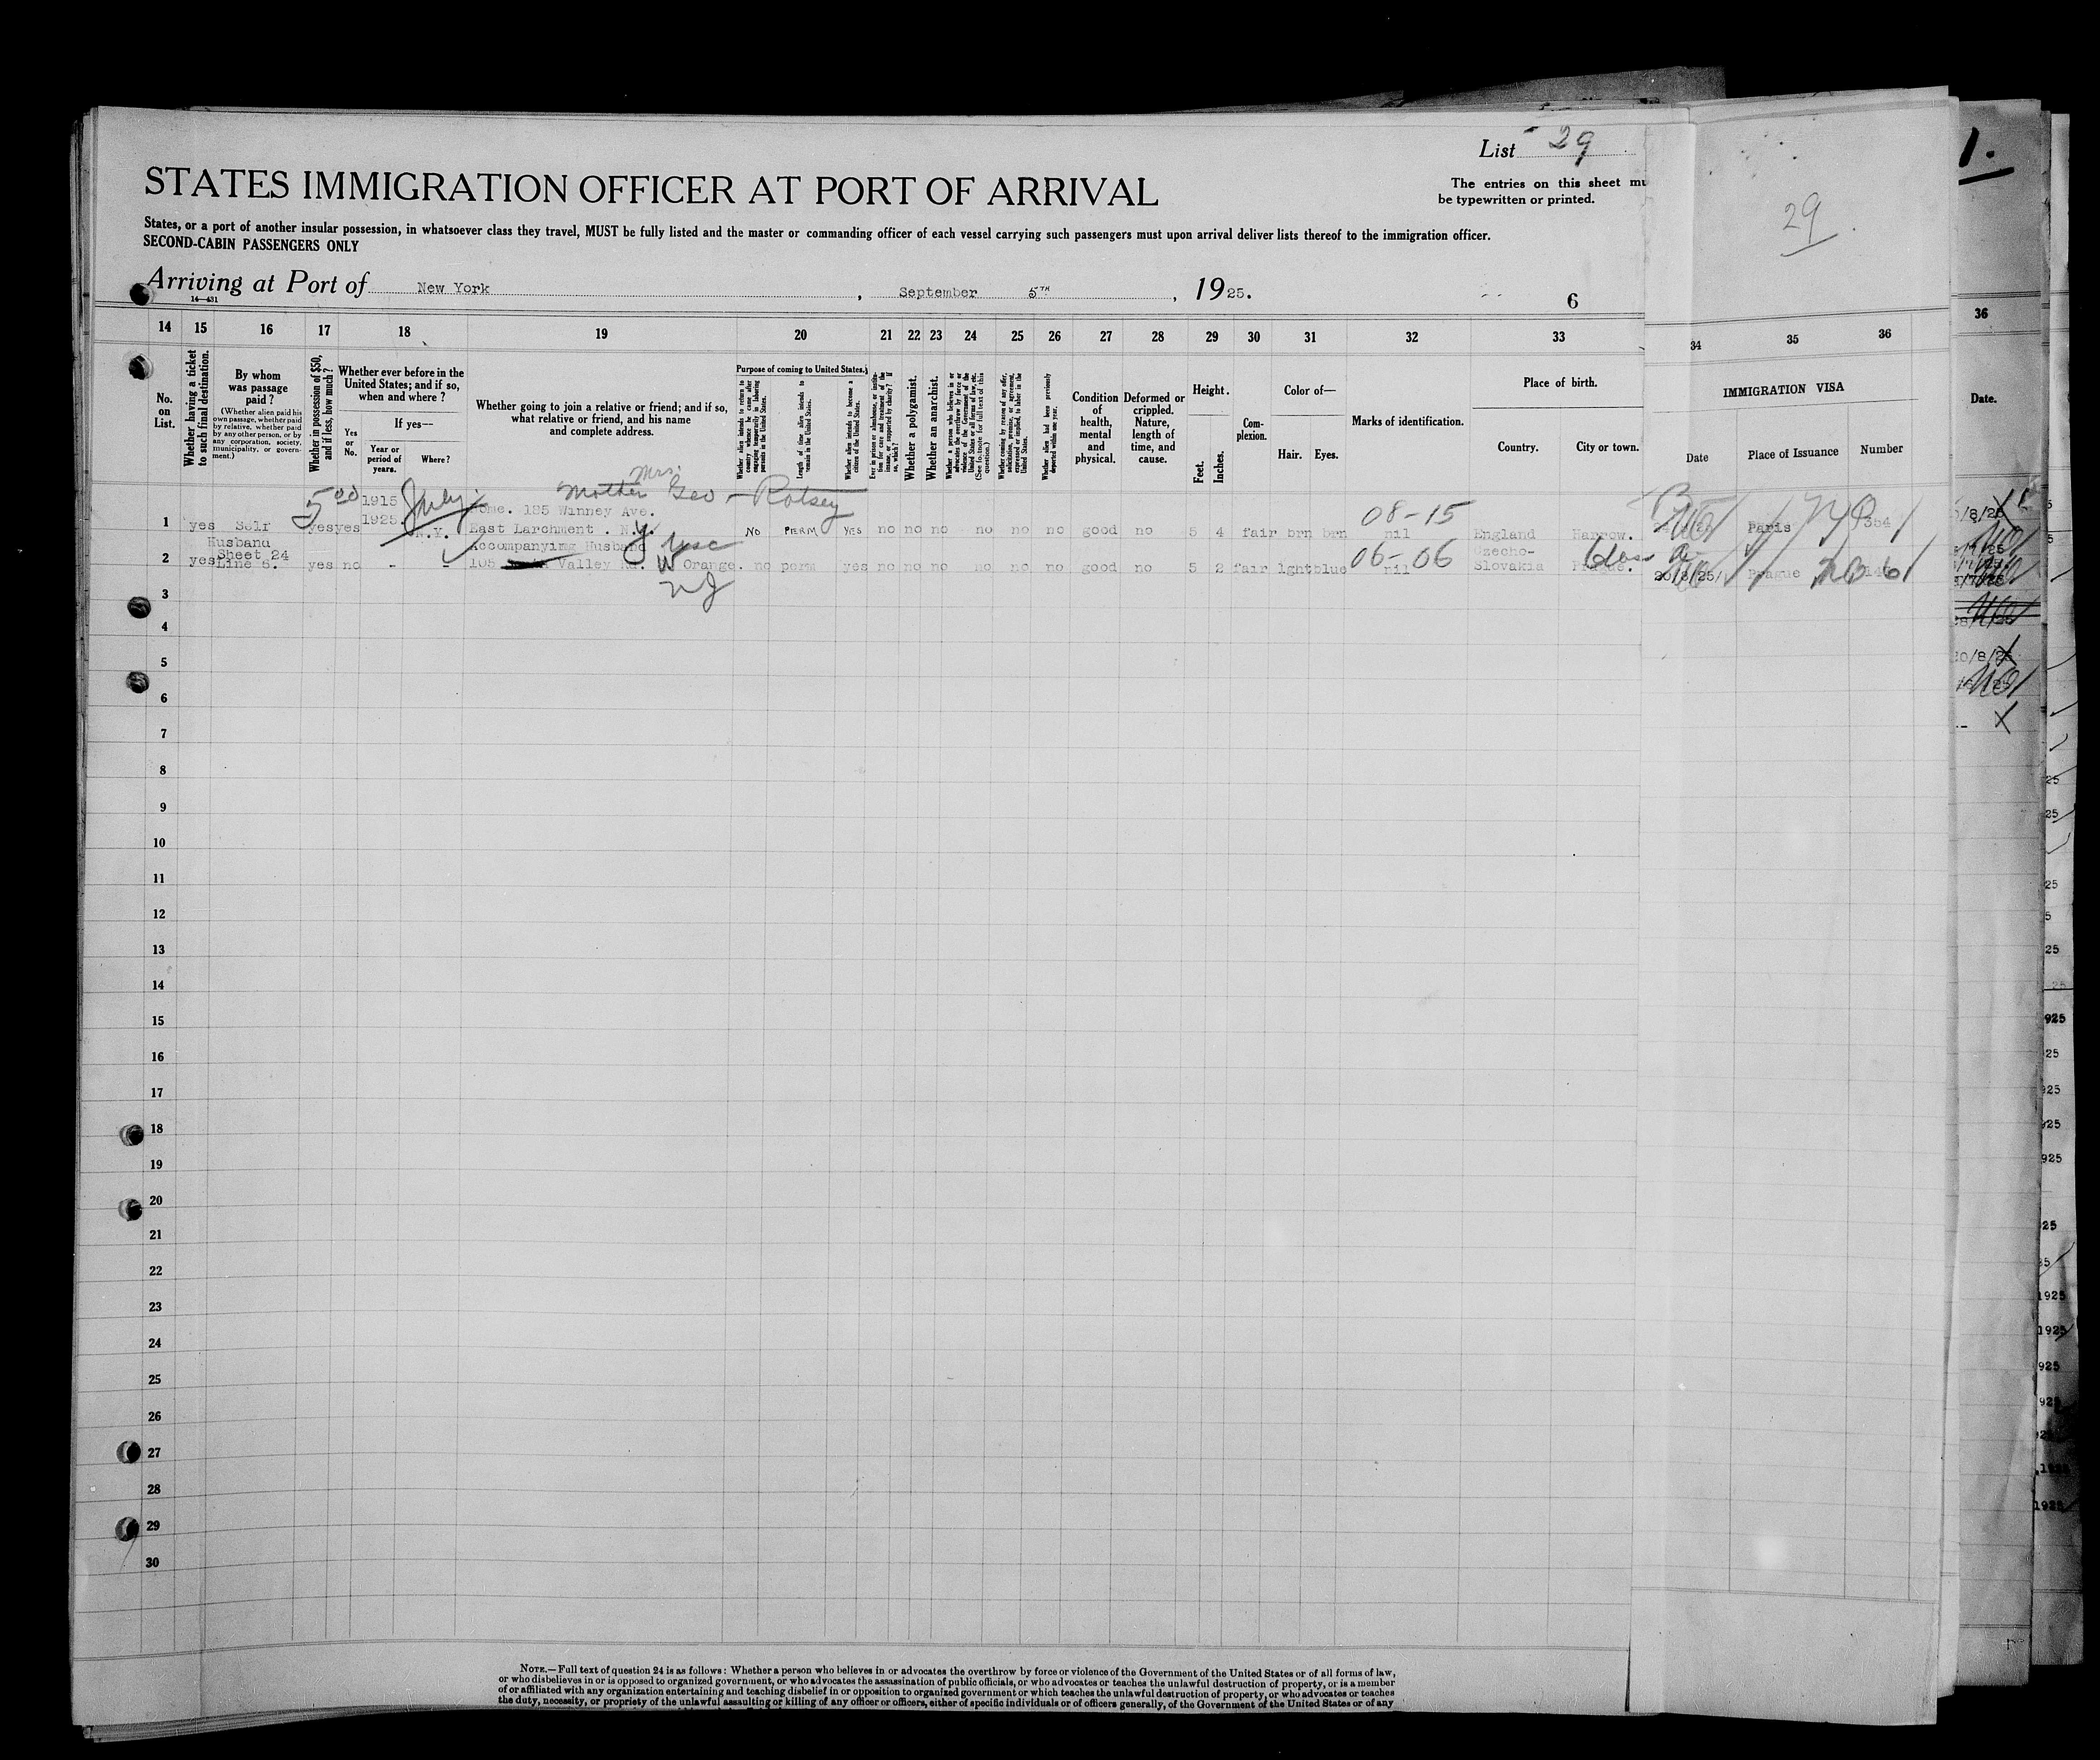 List 29
STATES IMMIGRATION OFFICER AT PORT OF ARRIVAL
The entries on this sheet mu
be typewritten or printed.
29
1.
States, or a port of another insular possession, in whatsoever class they travel, MUST be fully listed and the master or commanding officer of each vessel carrying such passengers must upon arrival deliver lists thereof to the immigration officer.
SECOND-CABIN PASSENGERS ONLY
Arriving at Port of New York, September 5TH, 1925.
14—431
6
14 15 16 17 18 19 20 21 22 23 24 25 26 27 28 29 30 31 32 33 34 35 36
36
No. on List.
Whether having a ticket to such final destination.
By whom was passage paid?
(Whether alien paid his own passage, whether paid by relative, whether paid by any other person, or by any corporation, society, municipality, or government.)
Whether in possession of $50, and if less, how much?
Whether ever before in the United States; and if so, when and where?
If yes—
Yes or No.
Year or period of years.
Where?
Whether going to join a relative or friend; and if so, what relative or friend, and his name and complete address.
Purpose of coming to United States.
Whether alien intends to return to country whence he came after engaging temporarily in laboring pursuits in the United States.
Length of time alien intends to remain in the United States.
Whether alien intends to become a citizen of the United States.
Ever in prison or almshouse, or institution for care and treatment of the insane, or supported by charity? If so, which?
Whether a polygamist.
Whether an anarchist.
Whether a person who believes in or advocates the overthrow by force or violence of the Government of the United States or all forms of law, etc. (See footnote for full text of this question.)
Whether coming by reason of any offer, solicitation, promise, or agreement, expressed or implied, to labor in the United States.
Whether alien had been previously deported within one year.
Condition of health, mental and physical.
Deformed or crippled. Nature, length of time, and cause.
Height.
Feet. Inches.
Complexion.
Color of—
Hair. Eyes.
Marks of identification.
Place of birth.
Country. City or town.
IMMIGRATION VISA
Date Place of Issuance Number
Date.
Mrs.
Mother Geo Rotsey
500 1915 July Home. 195 Winney Ave. 08-15
1 yes Self yes yes 1925. N.Y. East Larchment. N.Y. No PERM YES no no no no no no good no 5 4 fair brn brn nil England Harrow. Paris 354
Husband Accompanying Husband usc 06-06 Czecho-
2 yes Sheet 24 Line 6. yes no - - 105 Valley Rd. W Orange. no perm yes no no no no no no good no 5 2 fair lght blue nil Slovakia Prague. 20/8/25 Prague
NJ
3
4
5
6
7
8
9
10
11
12
13
14
15
16
17
18
19
20
21
22
23
24
25
26
27
28
29
30
NOTE.—Full text of question 24 is as follows: Whether a person who believes in or advocates the overthrow by force or violence of the Government of the United States or of all forms of law,
or who disbelieves in or is opposed to organized government, or who advocates the assassination of public officials, or who advocates or teaches the unlawful destruction of property, or is a member
of or affiliated with any organization entertaining and teaching disbelief in or opposition to organized government or which teaches the unlawful destruction of property, or who advocates or teaches
the duty, necessity, or propriety of the unlawful assaulting or killing of any officer or officers, either of specific individuals or of officers generally, of the Government of the United States or of any